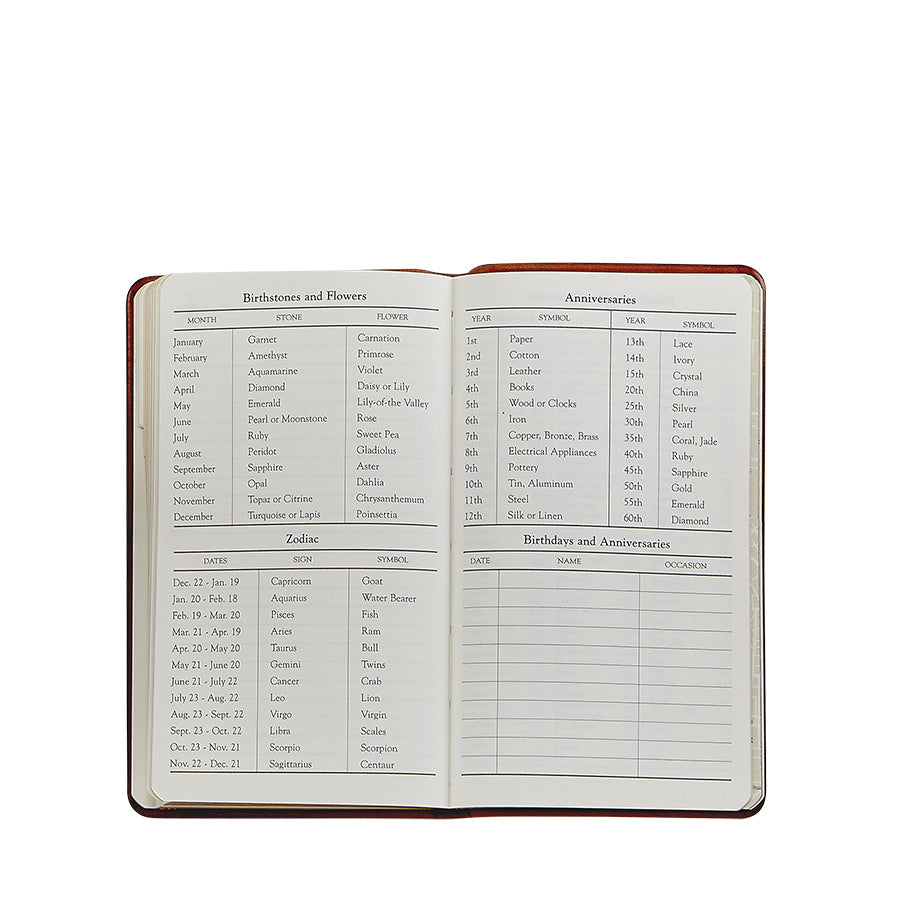 Birthstones and Flowers
MONTH STONE FLOWER
January Garnet Carnation
February Amethyst Primrose
March Aquamarine Violet
April Diamond Daisy or Lily
May Emerald Lily-of-the Valley
June Pearl or Moonstone Rose
July Ruby Sweet Pea
August Peridot Gladiolus
September Sapphire Aster
October Opal Dahlia
November Topaz or Citrine Chrysanthemum
December Turquoise or Lapis Poinsettia
Zodiac
DATES SIGN SYMBOL
Dec. 22 - Jan. 19 Capricorn Goat
Jan. 20 - Feb. 18 Aquarius Water Bearer
Feb. 19 - Mar. 20 Pisces Fish
Mar. 21 - Apr. 19 Aries Ram
Apr. 20 - May 20 Taurus Bull
May 21 - June 20 Gemini Twins
June 21 - July 22 Cancer Crab
July 23 - Aug. 22 Leo Lion
Aug. 23 - Sept. 22 Virgo Virgin
Sept. 23 - Oct. 22 Libra Scales
Oct. 23 - Nov. 21 Scorpio Scorpion
Nov. 22 - Dec. 21 Sagittarius Centaur
Anniversaries
YEAR SYMBOL YEAR SYMBOL
1st Paper 13th Lace
2nd Cotton 14th Ivory
3rd Leather 15th Crystal
4th Books 20th China
5th Wood or Clocks 25th Silver
6th Iron 30th Pearl
7th Copper, Bronze, Brass 35th Coral, Jade
8th Electrical Appliances 40th Ruby
9th Pottery 45th Sapphire
10th Tin, Aluminum 50th Gold
11th Steel 55th Emerald
12th Silk or Linen 60th Diamond
Birthdays and Anniversaries
DATE NAME OCCASION